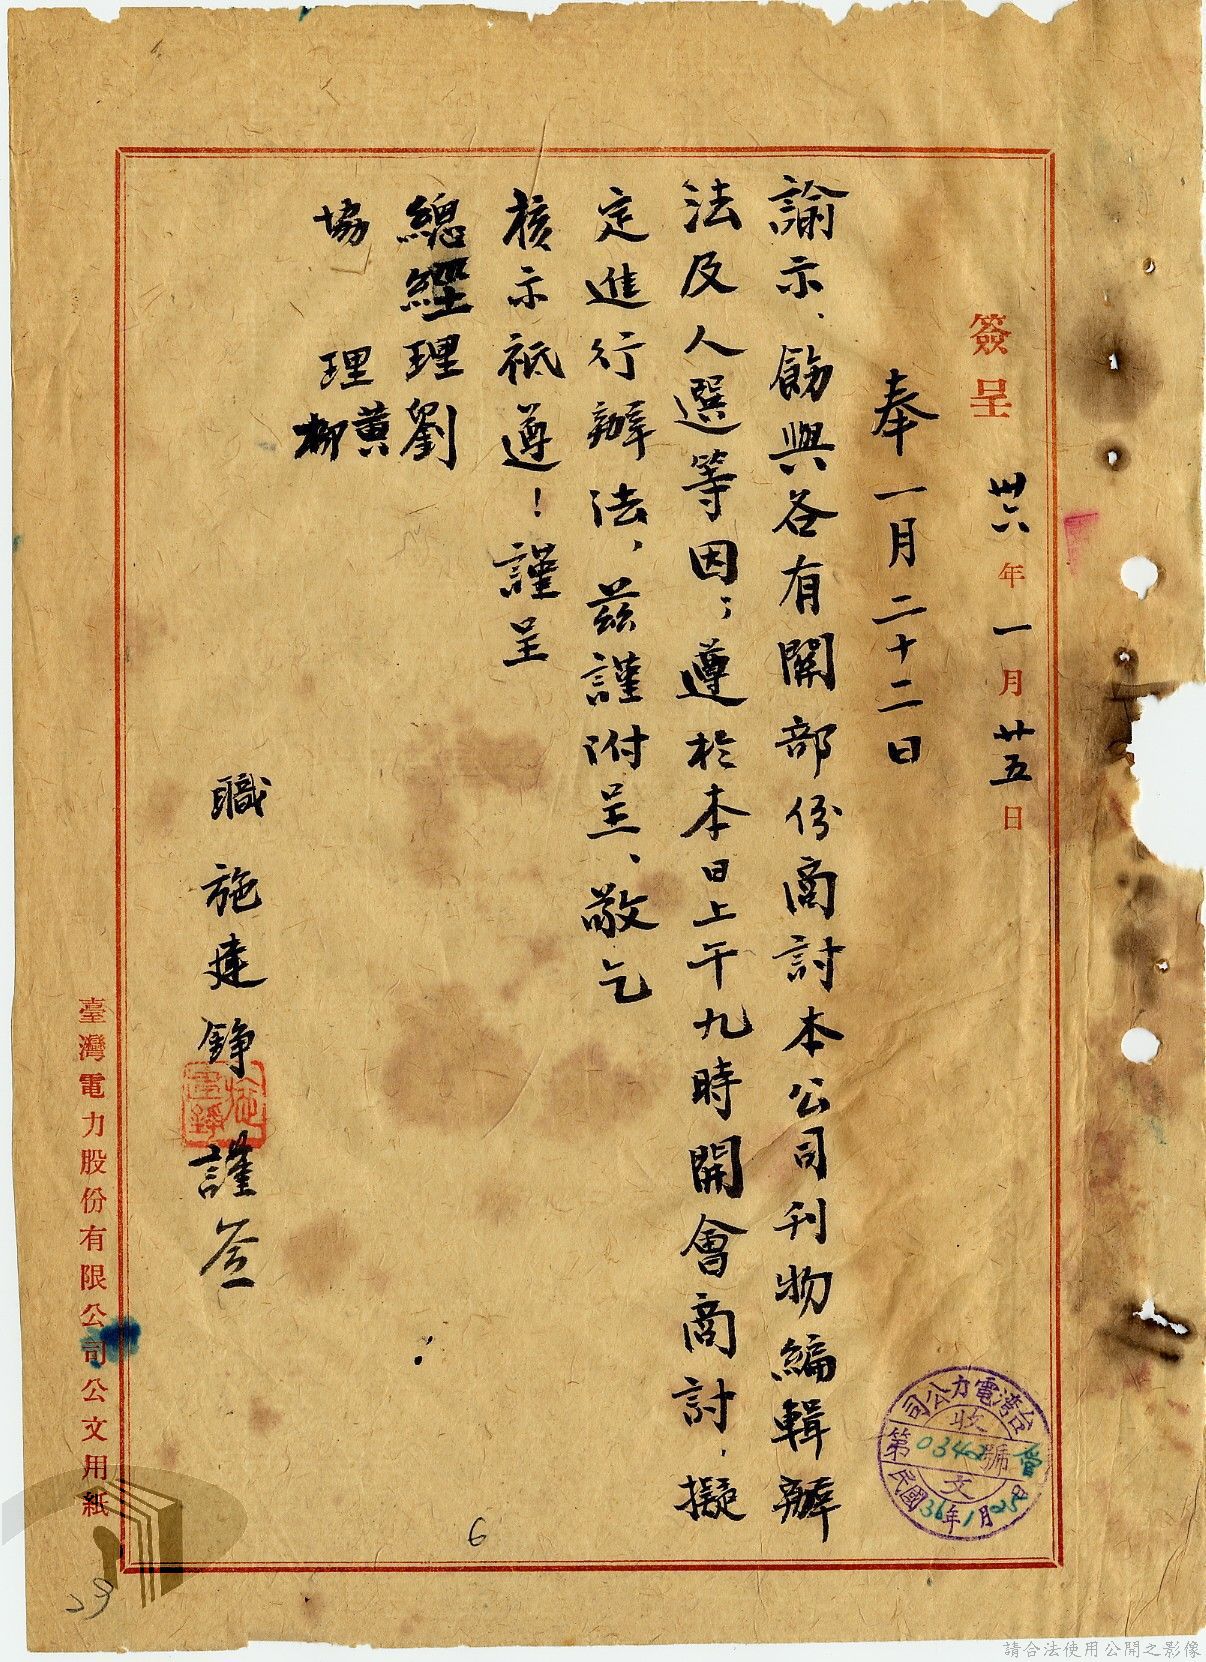 簽呈 卅六年一月廿五日
奉一月二十二日
諭示、飭與各有關部份商討本公司刊物編輯辦
法及人選等因；遵於本日上午九時開會商討，擬
定進行辦法，茲謹附呈、敬乞
核示祗遵！謹呈
總經理劉
協理黃
柳
職施建錚謹簽
施建錚
臺灣電力股份有限公司公文用紙
台湾電力公司
收文
第0342號
民國36年1月25日
6
請合法使用公開之影像